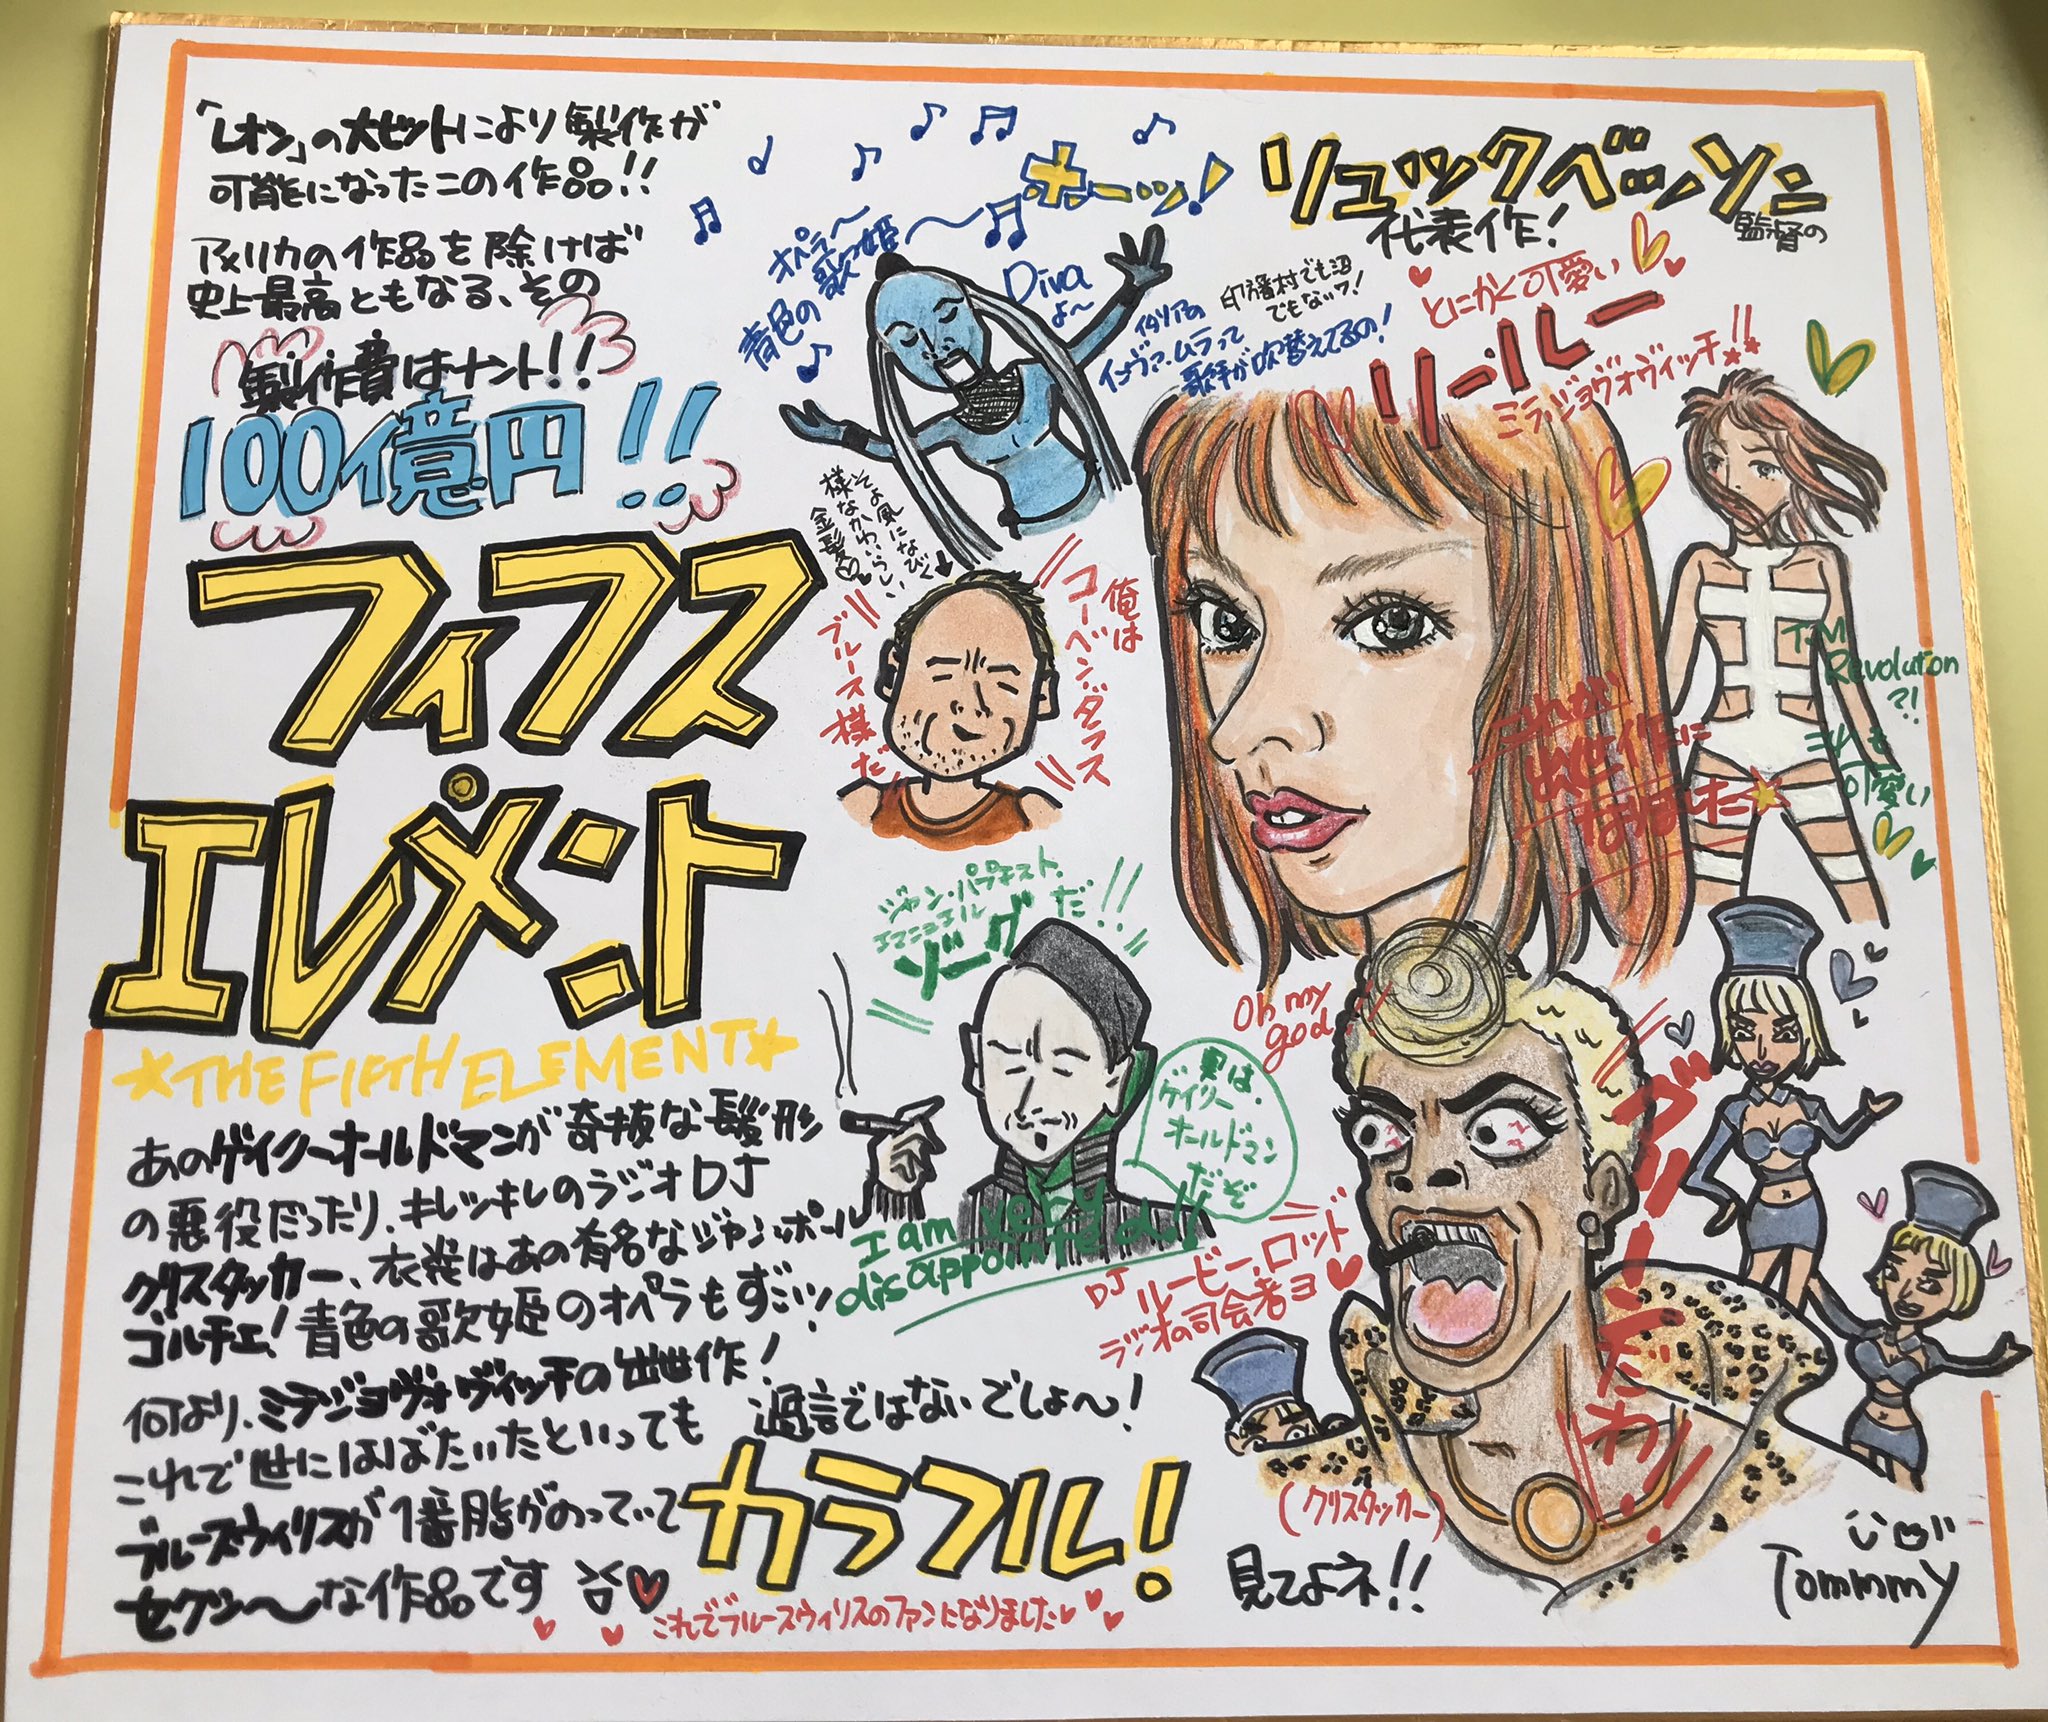 「レオン」の大ヒットにより製作が
可能になったこの作品!!
アメリカの作品を除けば
史上最高ともなる、その
製作費はナント!!
100億円!!
フィフス
エレメント
★THE FIFTH ELEMENT★
あのゲイリーオールドマンが奇抜な髪形
の悪役だったり、キレッキレのラジオDJ
クリスタッカー、衣装はあの有名なジャンポール
ゴルチエ!青色の歌姫のオペラもすごいッ
何より、ミラジョヴォヴィッチの出世作!
これで世にはばたいたといっても 過言ではないでしょ〜!
ブルースウィリスが1番脂がのっていて
セクシ〜な作品です
カラフル!
これでブルースウィリスのファンになりました
オペラ〜
青色の歌姫〜
オーッ!
Diva
よ〜
イタリアの
インヴァ・ムラって
歌手が吹替えてるの!
印旛村でも沼
でもないワ!
リュックベッソン
監督の
代表作!
とにかく可愛い
リールー
ミラジョヴォヴィッチ!!
T・M
Revolution
?!
これが
出世作に
なりました★
そよ風になびく
様なかわいらしい
金髪
俺は
コーベン・ダラス
ブルース様だ
ジャン・バプティスト・
エマニュエル
ゾーグだ!!
実は、
ゲイリー
オールドマン
だぞ
I am very
disappointed!
Oh my
god!!
グリーンだわ!!
DJ ルービー・ロッド
ラジオの司会者ヨ
(クリスタッカー)
見てよネ!!
Tommmy